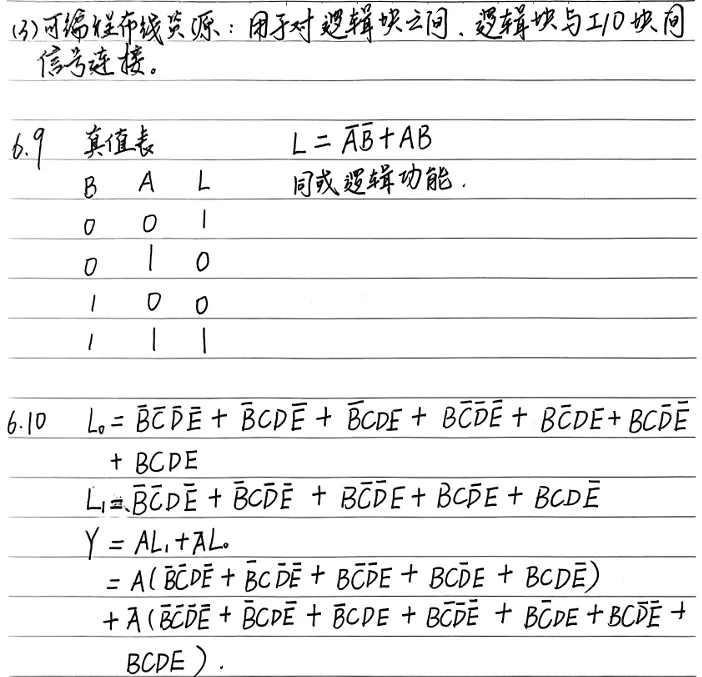 (3)可编程布线资源：用于对逻辑块之间、逻辑块与I/O块间
信号连接。
6.9 真值表 L = A̅B̅ + AB
B A L 同或逻辑功能.
0 0 1
0 1 0
1 0 0
1 1 1
6.10 L₀ = B̅C̅D̅E̅ + B̅CDE̅ + B̅CDE + BC̅D̅E̅ + BC̅DE + BCD̅E̅
+ BCDE
L₁ = B̅C̅DE̅ + B̅CD̅E̅ + BC̅D̅E + BCD̅E + BCDE̅
Y = AL₁ + A̅L₀
= A(B̅C̅DE̅ + B̅CD̅E̅ + BC̅D̅E + BCD̅E + BCDE̅)
+ A̅(B̅C̅D̅E̅ + B̅CDE̅ + B̅CDE + BC̅D̅E̅ + BC̅DE + BCD̅E̅ +
BCDE).